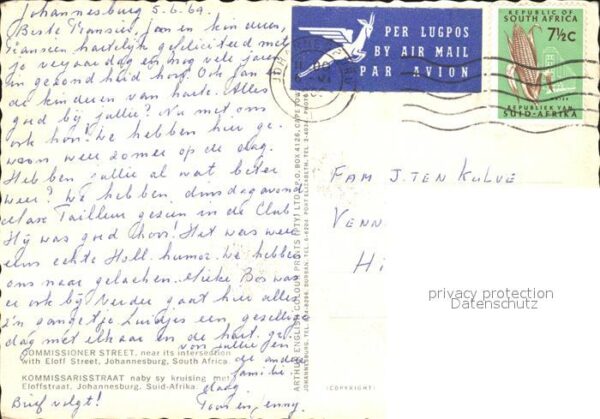 Johannesburg 5.6.64.
Beste Fransien, Jaan en kinderen,
Fransien hartelijk gefeliciteerd met
je verjaardag en nog vele jaren
in gezondheid hoor. Ook Jan en
de kinderen van harte. Alles
goed bij jullie? Nu met ons
ook hoor! We hebben hier ge-
woon weer zomer op de dag.
Hebben jullie al wat beter
weer? We hebben dinsdagavond
Max Tailleur gezien in de Club
Hij was goed hoor! Het was weer
eens echte Holl. humor. We hebben
ons naar gelachen. Mieke Bos was
er ook bij. Verder gaat hier alles
z'n gangetje. Luidjes een gezellige
dag met elkaar en de hart. gr.
van jullie en
de andere
familie.
daag
Brief volgt! Toon en Jenny.
COMMISSIONER STREET, near its intersection
with Eloff Street, Johannesburg, South Africa.
KOMMISSARISSTRAAT naby sy kruising met
Eloffstraat, Johannesburg, Suid-Afrika.
ARTHUR ENGLISH COLOUR PRINTS (PTY) LTD., P.O. BOX 4126, CAPE TOWN
JOHANNESBURG, TEL.
(COPYRIGHT)
PER LUGPOS
BY AIR MAIL
PAR AVION
REPUBLIC OF
SOUTH AFRICA
7½c
REPUBLIEK VAN
SUID-AFRIKA
FAM J. TEN KULVE
VENN
HI
privacy protection
Datenschutz